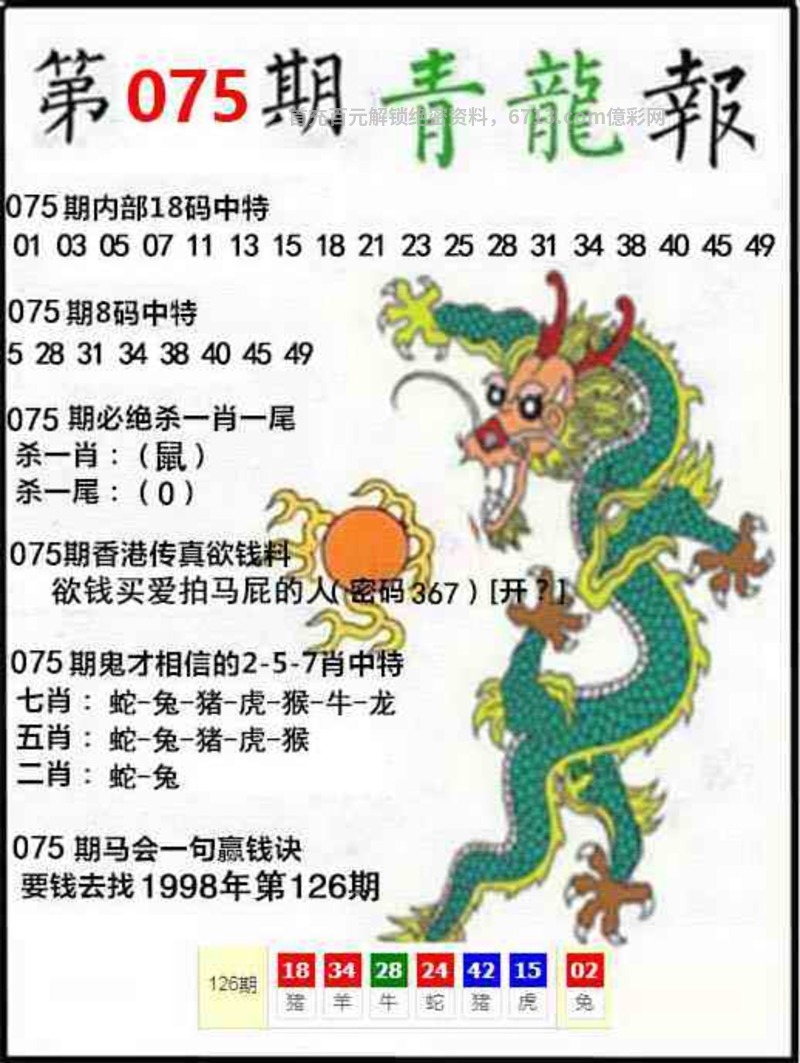 第075期青龍報
首充百元解锁绝密资料，6713.com億彩网
075期内部18码中特
01 03 05 07 11 13 15 18 21 23 25 28 31 34 38 40 45 49
075期8码中特
5 28 31 34 38 40 45 49
075 期必绝杀一肖一尾
杀一肖：（鼠）
杀一尾：（0）
075期香港传真欲钱料
欲钱买爱拍马屁的人( 密码 367 ) [开？]
075 期鬼才相信的2-5-7肖中特
七肖： 蛇-兔-猪-虎-猴-牛-龙
五肖： 蛇-兔-猪-虎-猴
二肖： 蛇-兔
075 期马会一句赢钱诀
要钱去找1998年第126期
126期 18 34 28 24 42 15 02
猪 羊 牛 蛇 猪 虎 兔